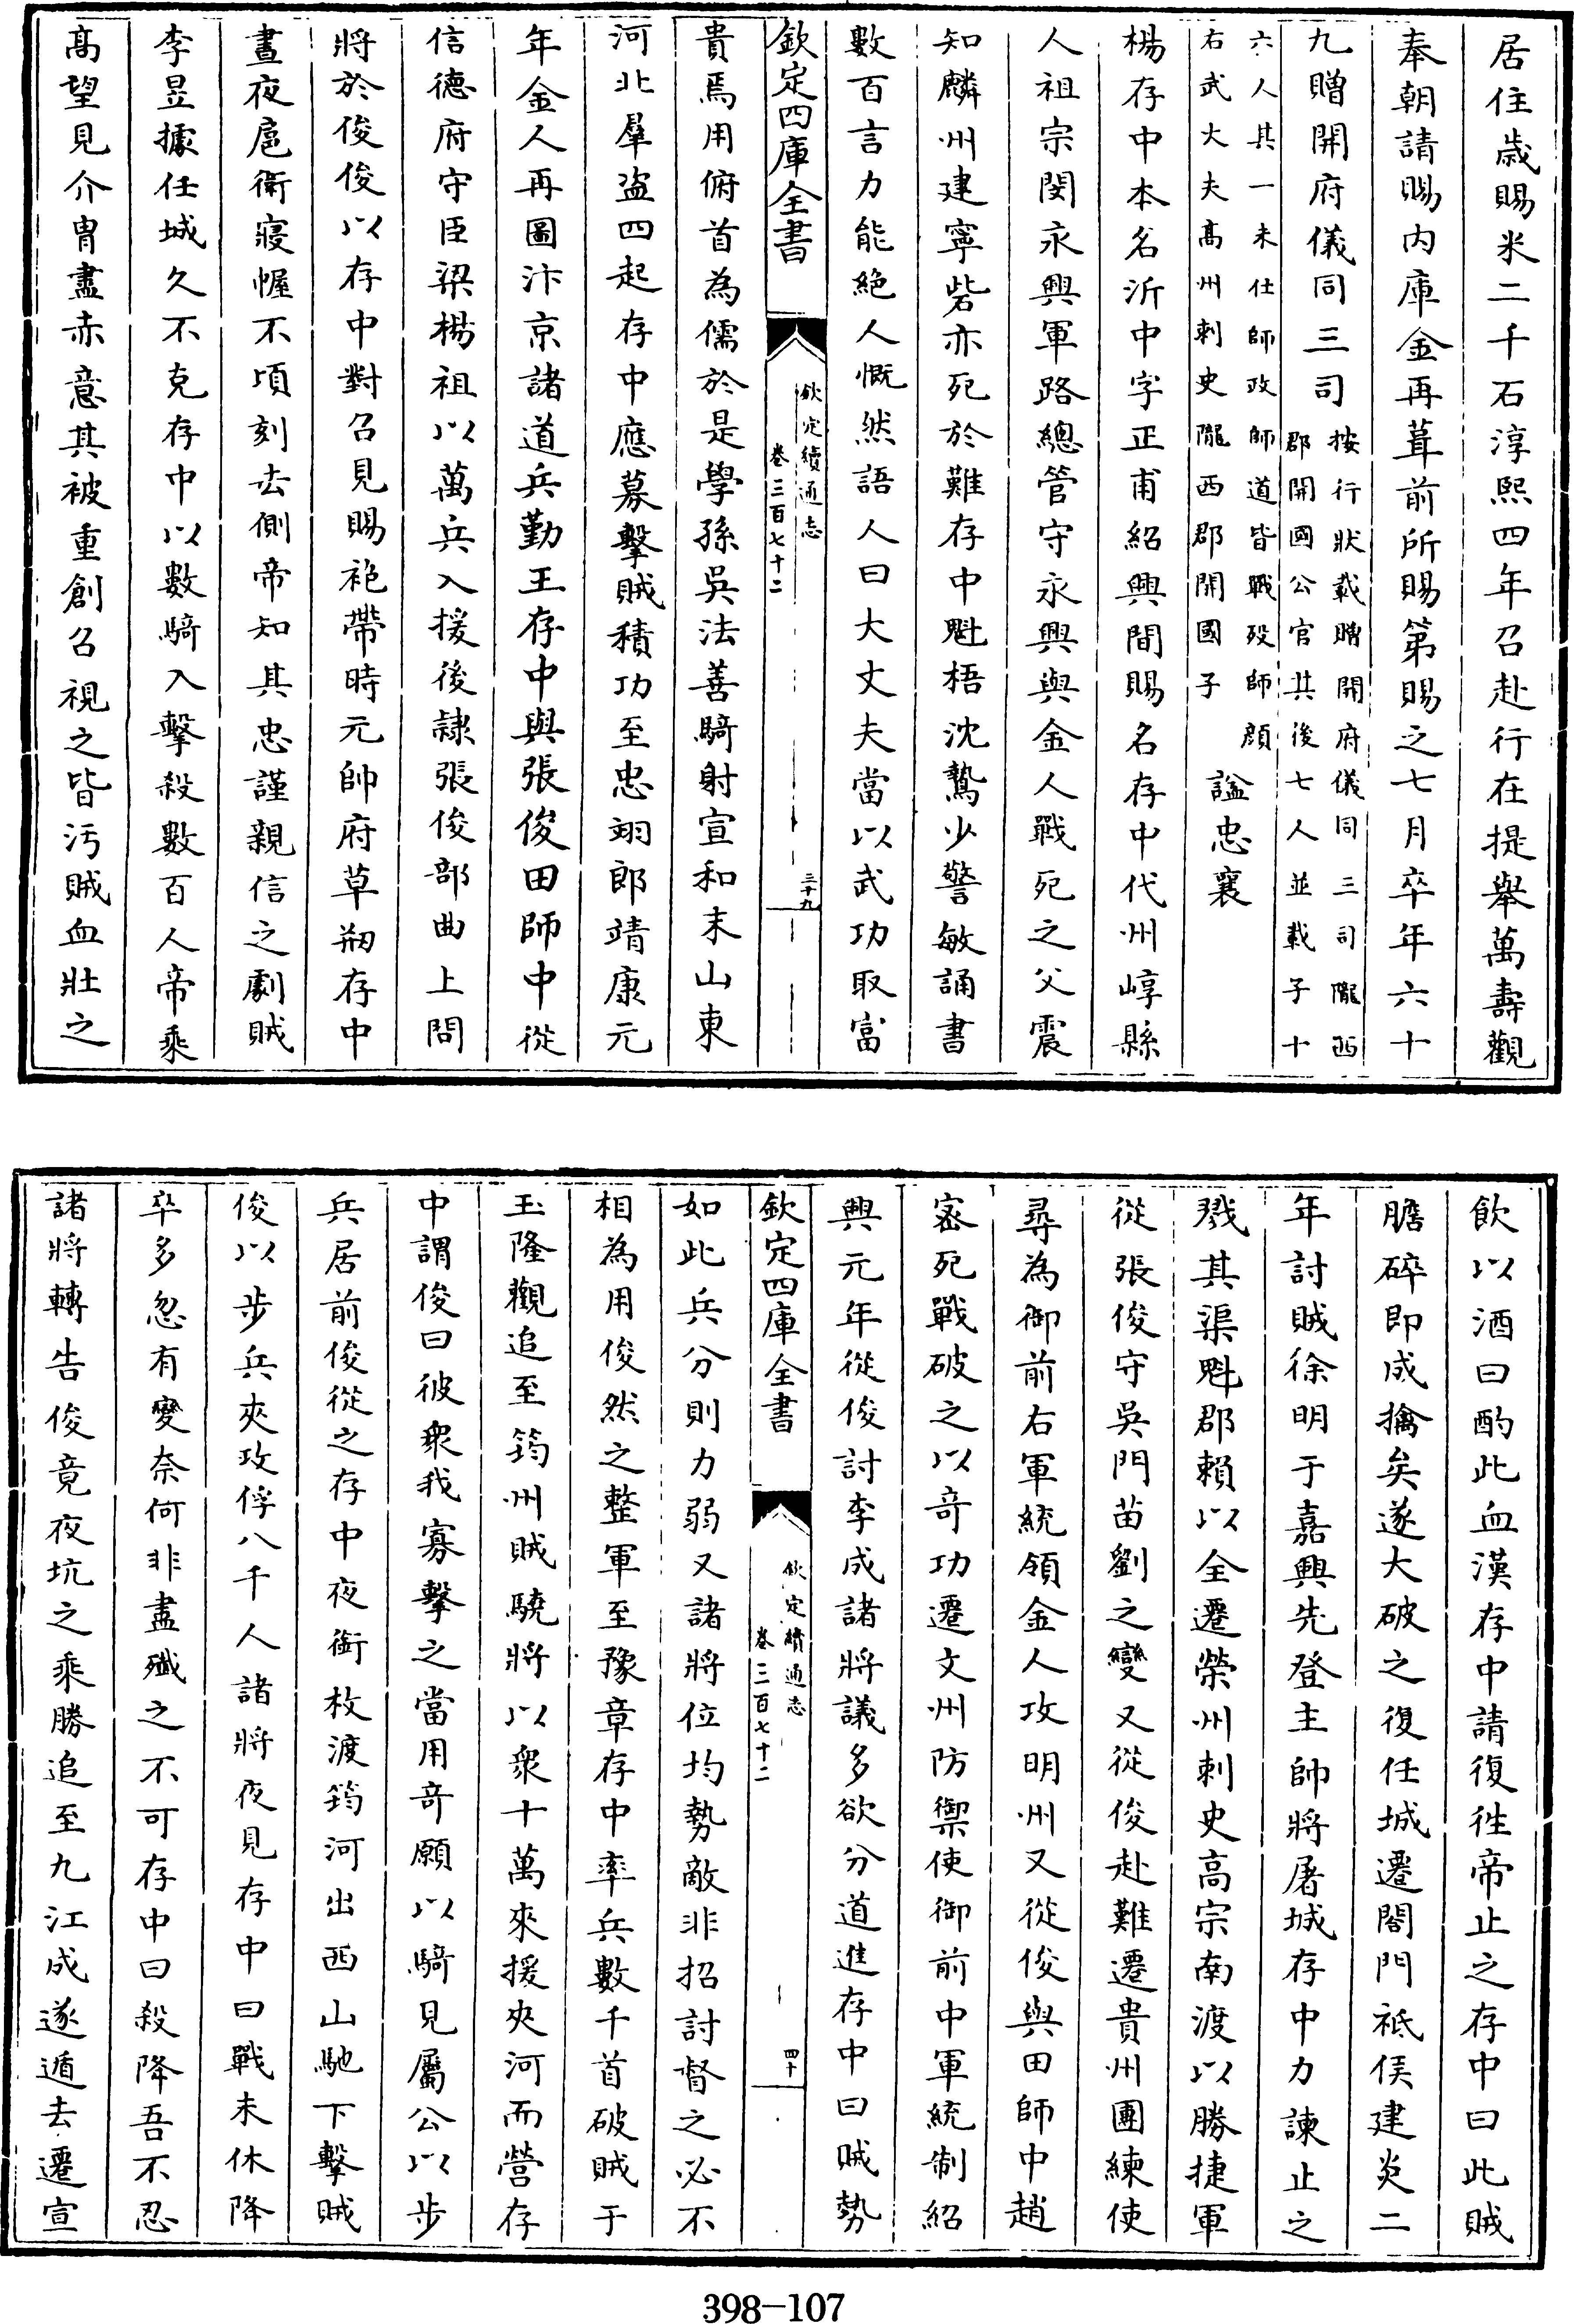 居住歳賜米二千石淳熙四年召赴行在提舉萬壽觀
奉朝請賜内庫金再葺前所賜第賜之七月卒年六十
九贈開府儀同三司按行狀載贈開府儀同三司隴西
郡開國公官其後七人並載子十
六人其一未仕師政師道皆戰歿師顔
右武大夫髙州刺史隴西郡開國子
諡忠襄
楊存中本名沂中字正甫紹興間賜名存中代州崞縣
人祖宗閔永興軍路總管守永興與金人戰死之父震
知麟州建寧砦亦死於難存中魁梧沈鷙少警敏誦書
數百言力能絶人慨然語人曰大丈夫當以武功取富
欽定四庫全書
欽定續通志
卷三百七十二
三十九
貴焉用俯首為儒於是學孫吳法善騎射宣和末山東
河北羣盗四起存中應募擊賊積功至忠翊郎靖康元
年金人再圖汴京諸道兵勤王存中與張俊田師中從
信德府守臣梁楊祖以萬兵入援後隷張俊部曲上問
將於俊俊以存中對召見賜袍帶時元帥府草刱存中
晝夜扈衛寢幄不頃刻去側帝知其忠謹親信之劇賊
李昱據任城久不克存中以數騎入擊殺數百人帝乘
髙望見介胄盡赤意其被重創召視之皆汚賊血壯之
飲以酒曰酌此血漢存中請復徃帝止之存中曰此賊
膽碎即成擒矣遂大破之復任城遷閤門祗侯建炎二
年討賊徐明于嘉興先登主帥將屠城存中力諫止之
戮其渠魁郡賴以全遷榮州刺史高宗南渡以勝捷軍
從張俊守吳門苗劉之變又從俊赴難遷貴州團練使
尋為御前右軍統領金人攻明州又從俊與田師中趙
密死戰破之以竒功遷文州防禦使御前中軍統制紹
興元年從俊討李成諸將議多欲分道進存中曰賊勢
欽定四庫全書
欽定續通志
卷三百七十二
四十
如此兵分則力弱又諸將位均勢敵非招討督之必不
相為用俊然之整軍至豫章存中率兵數千首破賊于
玉隆觀追至筠州賊驍將以衆十萬來援夾河而營存
中謂俊曰彼衆我寡擊之當用竒願以騎見屬公以步
兵居前俊從之存中夜銜枚渡筠河出西山馳下擊賊
俊以步兵夾攻俘八千人諸將夜見存中曰戰未休降
卒多忽有變奈何非盡殲之不可存中曰殺降吾不忍
諸將轉告俊竟夜坑之乘勝追至九江成遂遁去遷宣
398-107